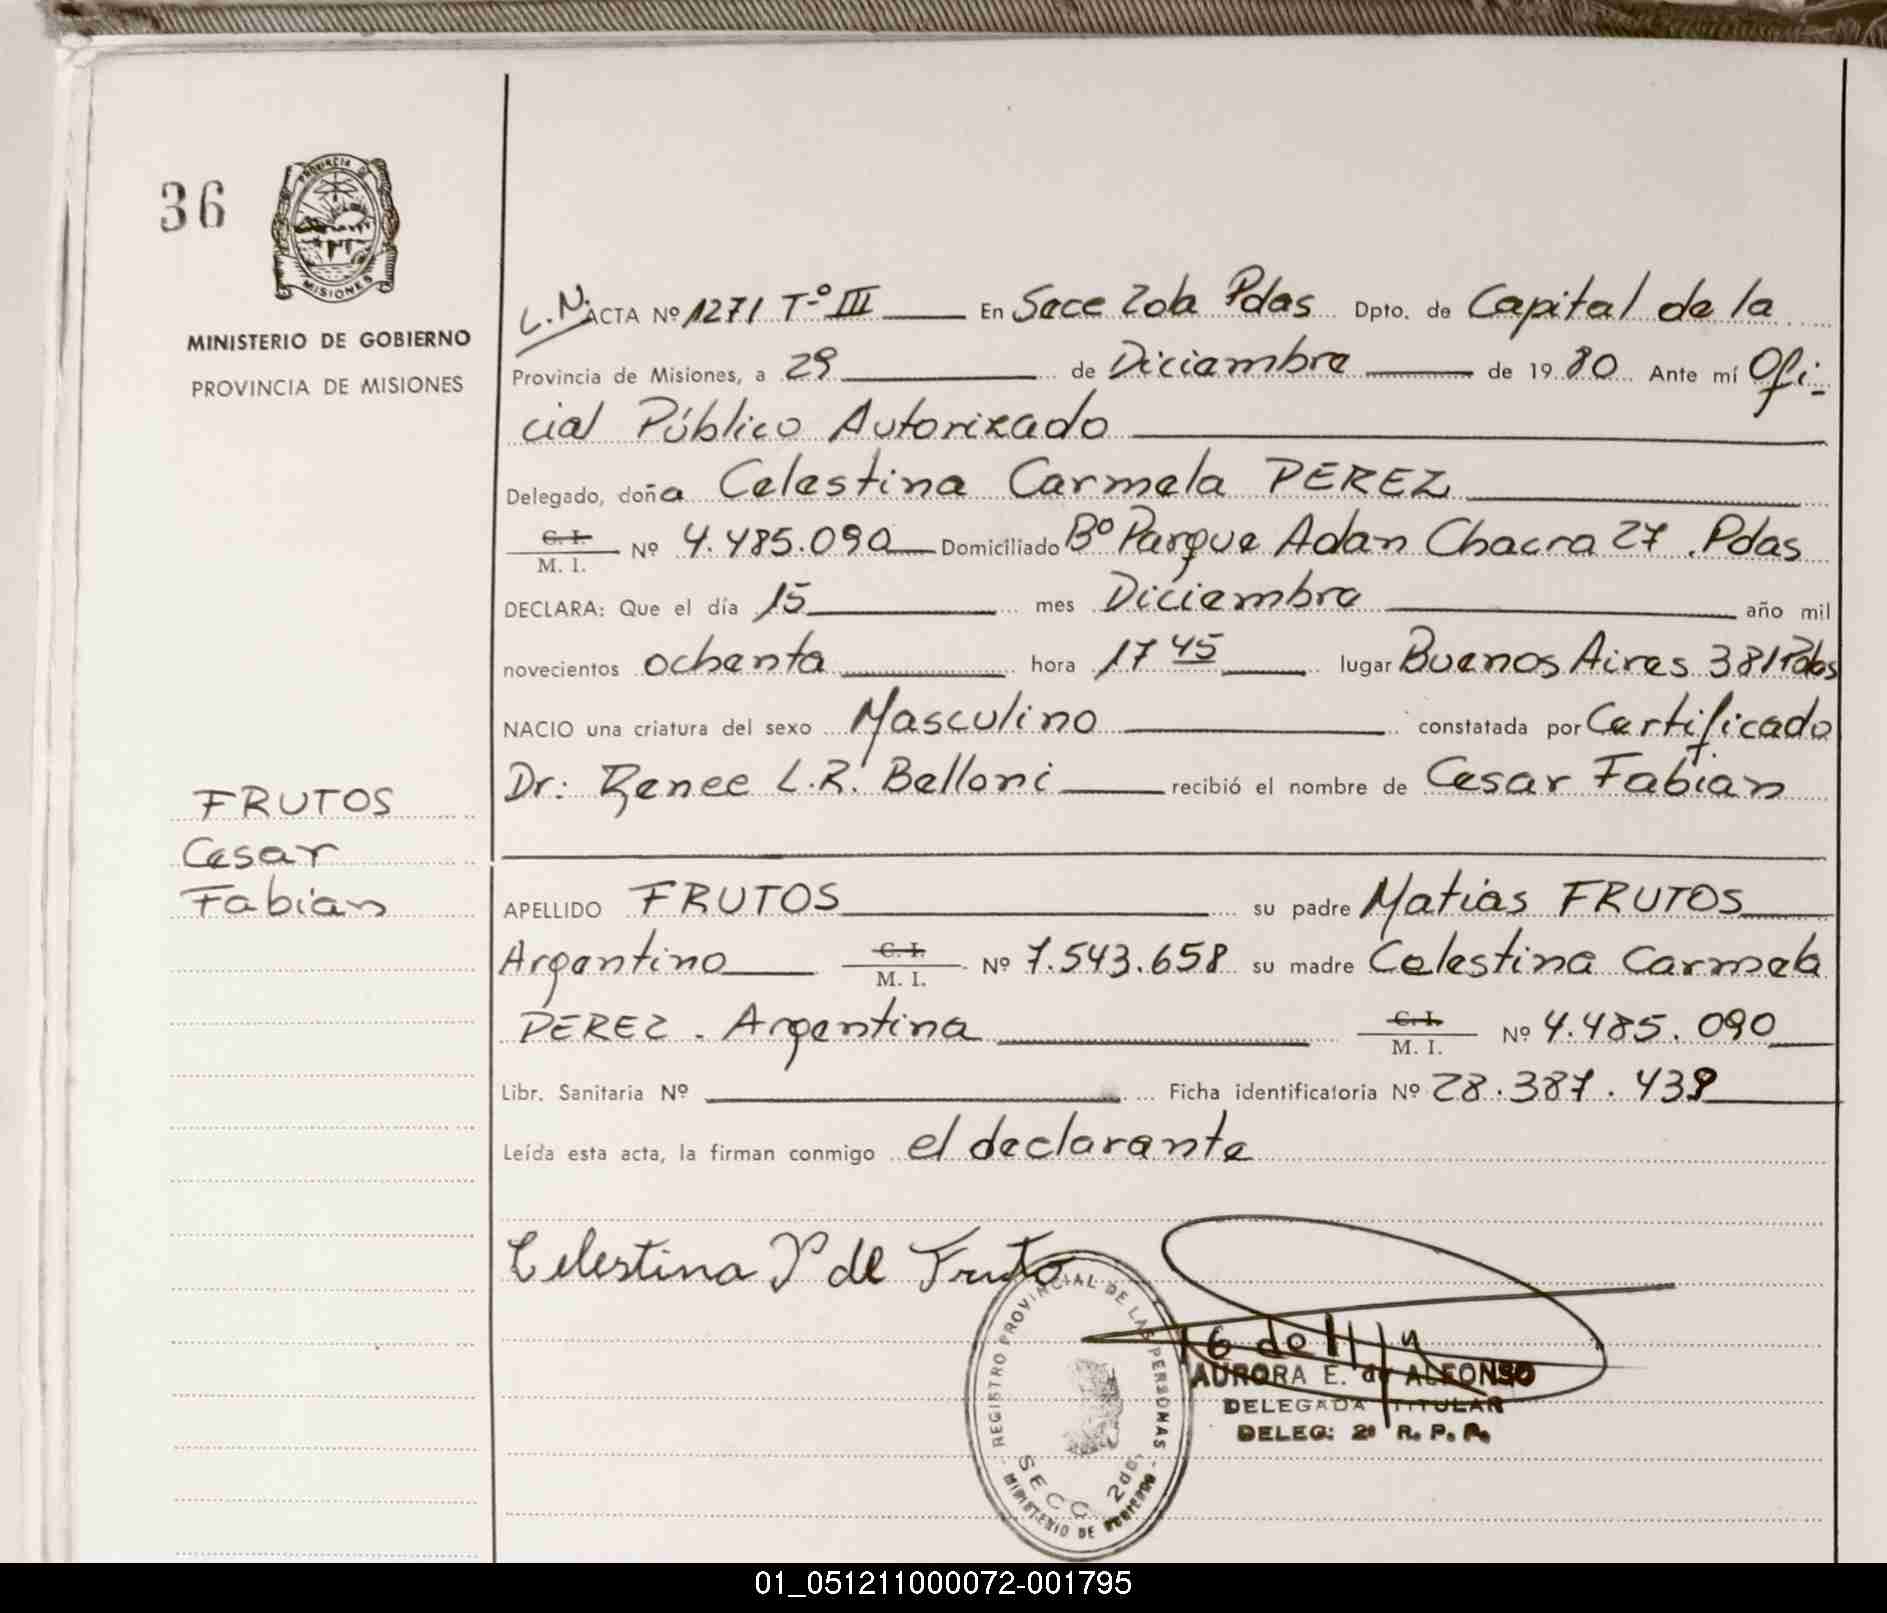 36
PROVINCIA DE
MISIONES
MINISTERIO DE GOBIERNO
PROVINCIA DE MISIONES
FRUTOS
Cesar
Fabian
L.N. ACTA Nº 1271 Tº III En Secc 2da Pdas Dpto. de Capital de la
Provincia de Misiones, a 29 de Diciembre de 1980 Ante mí Ofi-
cial Público Autorizado
Delegado, doña Celestina Carmela PEREZ
C. I. M. I. Nº 4.485.090 Domiciliado Bº Parque Adan Chacra 27. Pdas
DECLARA: Que el día 15 mes Diciembre año mil
novecientos ochenta hora 17 45 lugar Buenos Aires 381 Pdas
NACIO una criatura del sexo Masculino constatada por Certificado
Dr: Renee L.R. Belloni recibió el nombre de Cesar Fabian
APELLIDO FRUTOS su padre Matias FRUTOS
Argentino C. I. M. I. Nº 7.543.658 su madre Celestina Carmela
PEREZ. Argentina C. I. M. I. Nº 4.485.090
Libr. Sanitaria Nº Ficha identificatoria Nº 28.387.439
Leída esta acta, la firman conmigo el declarante
Celestina P de Fruto
REGISTRO PROVINCIAL DE LAS PERSONAS
SECC. 2da.
MINISTERIO DE GOBIERNO
AURORA E. de ALFONSO
DELEGADA TITULAR
DELEG: 2ª R. P. P.
01_051211000072-001795